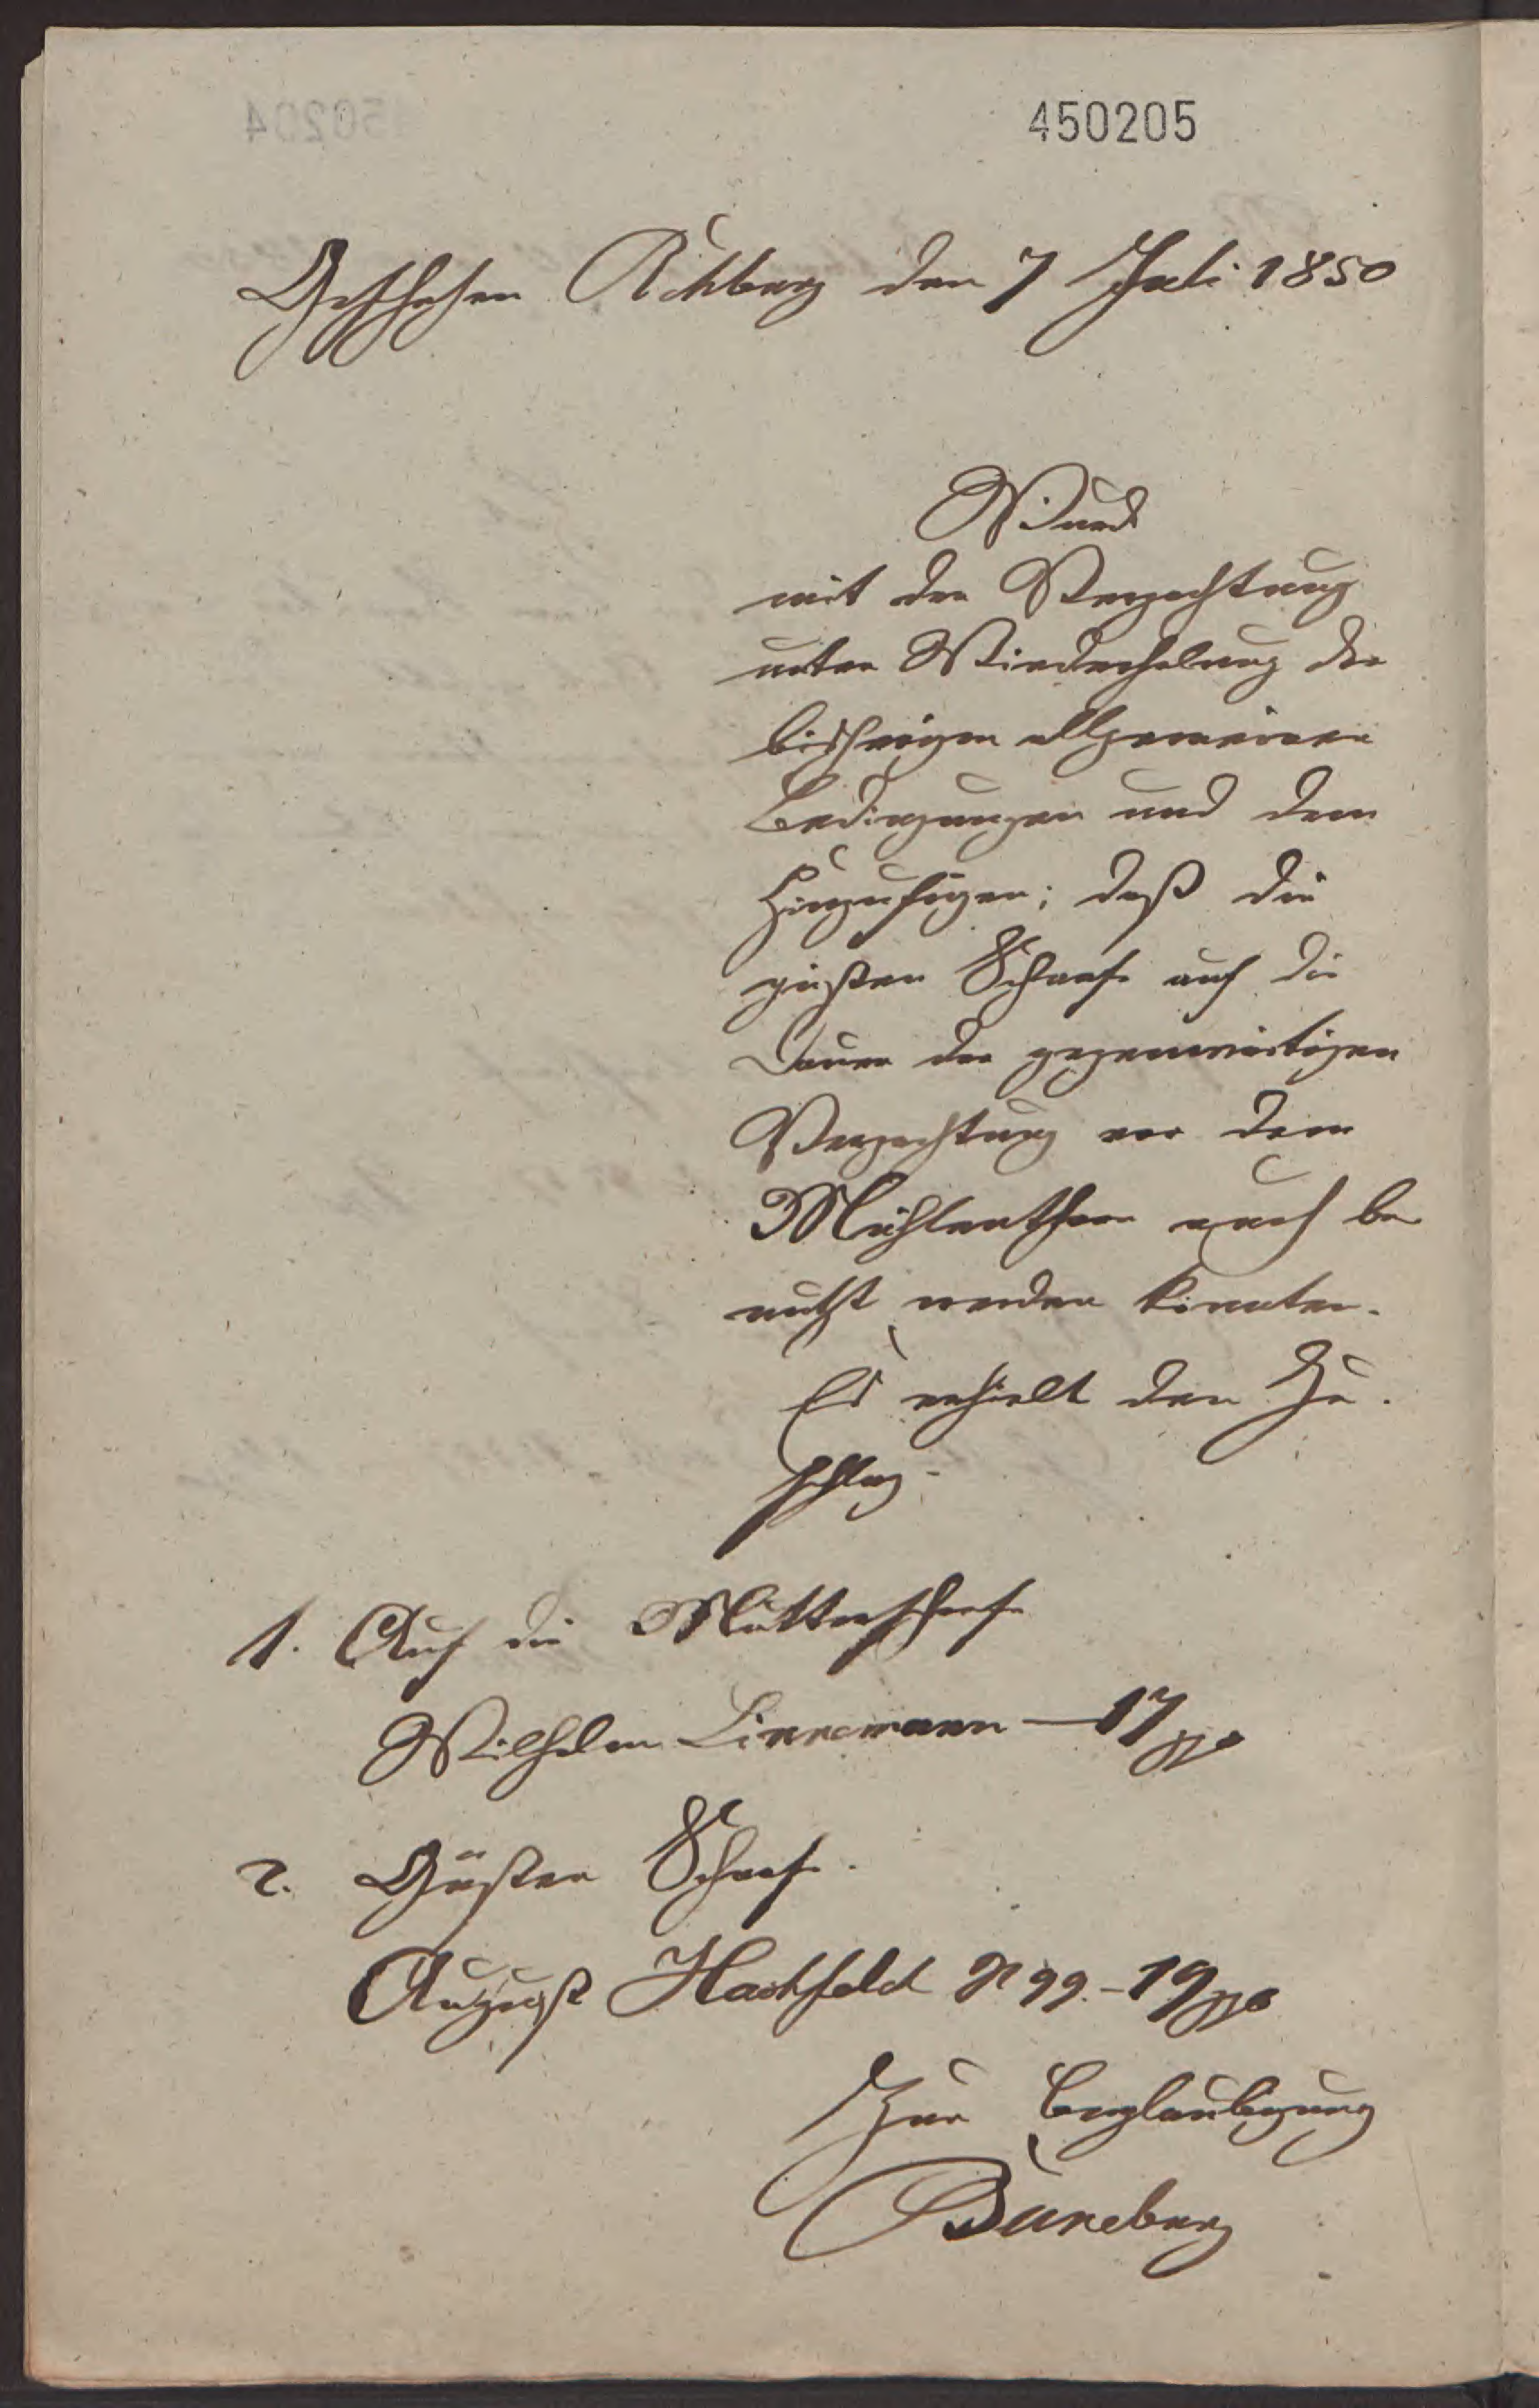 450205
Geschehen Rehberg den 7 Juli 1850
Wurde
mit der Verpachtung
unter Wiederholung der
bisherigen allgemeinen
Bedingungen und dem
Hinzufügen; daß die
güsten Schaafe auf die
Dauer der gegenwärtigen
Verpachtung vor dem
Mühlenthore auch be
nutzt werden könnten.
Es erhielt den Zu-
schlag.
1. Auf die Mutterschafe
Wilhelm Linnemann — 17
2. Güsten Schaafe.
August Hachfeld N 99. - 19
Zur Beglaubigung
Büneburg